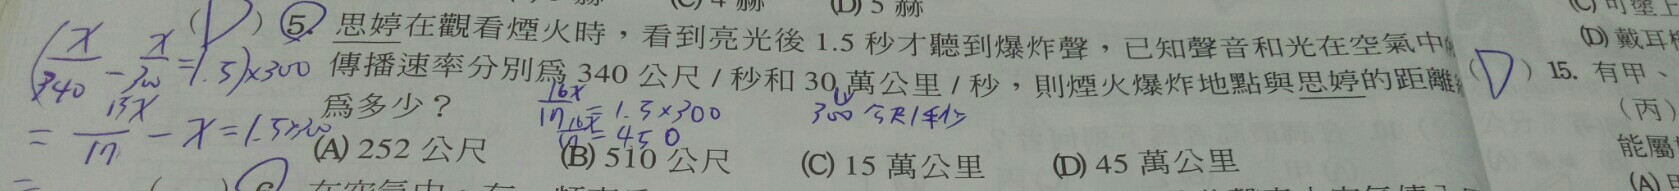 (D) 5 赫
(D) ⑤. 思婷在觀看煙火時，看到亮光後 1.5 秒才聽到爆炸聲，已知聲音和光在空氣中
傳播速率分別為 340 公尺／秒和 30 萬公里／秒，則煙火爆炸地點與思婷的距離
為多少？
(A) 252 公尺 (B) 510 公尺 (C) 15 萬公里 (D) 45 萬公里
(x/340 - x/300 = 1.5)×300
= 15x/17 - x = 1.5×300
16x/17 = 1.5×300
16x/17 = 450
300 公尺/秒
(D) 戴耳
(D) 15. 有甲、
（丙）
能屬
(A)